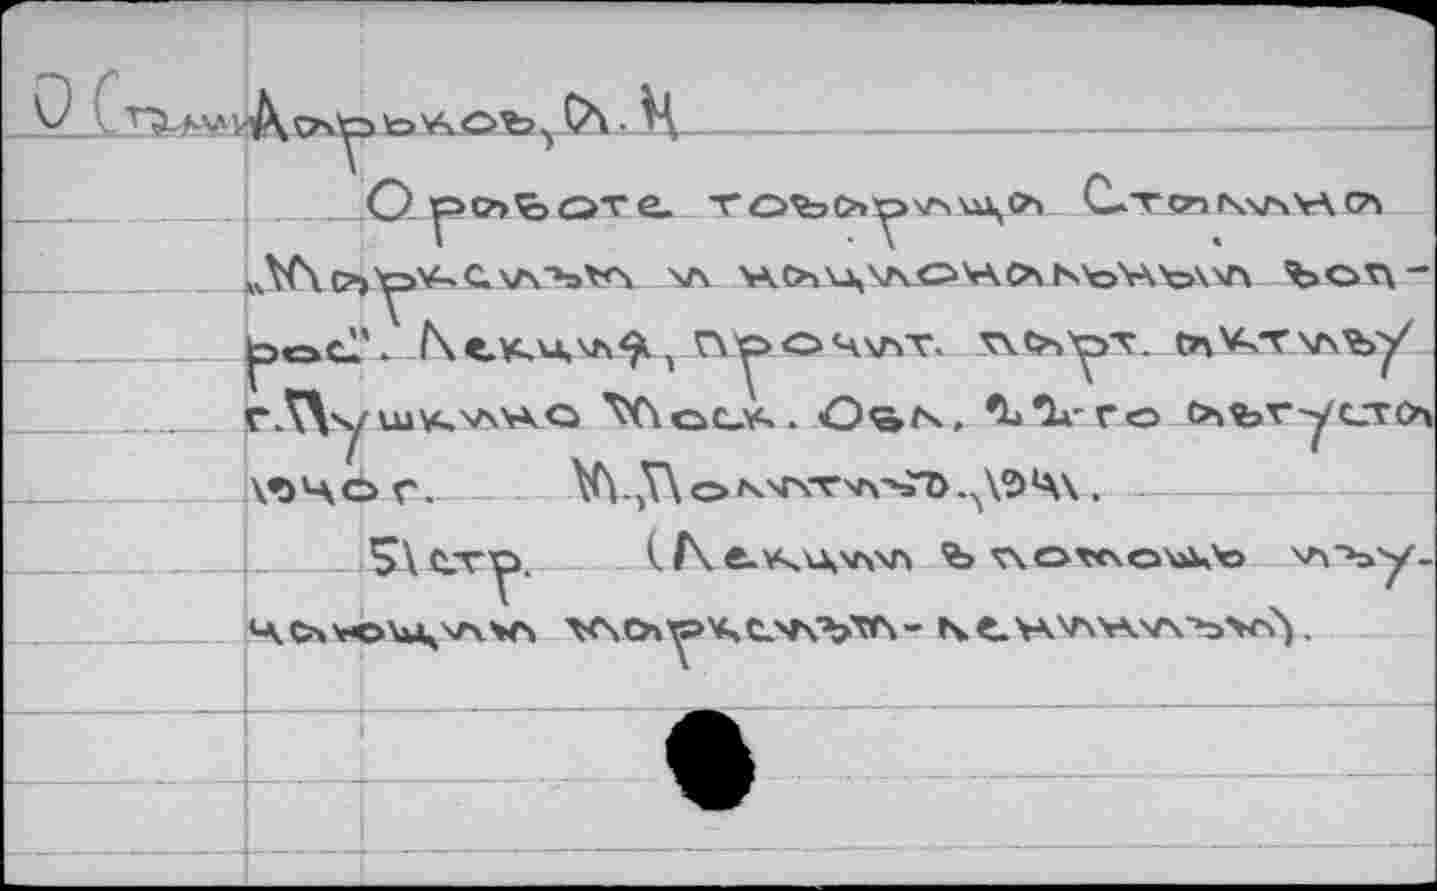 О Сталин
Адрьнов, А. Ч
О работе товарища Сталина
„Марксизм и национальный воп-
рос". Лекция, прочит. парт. активу
г. Пушкино Моск. обл. 22-го августа
1940 г. М., Политизд., 1941.
51 стр. (Лекции в помощь изу-
чающим марксизм-ленинизм).